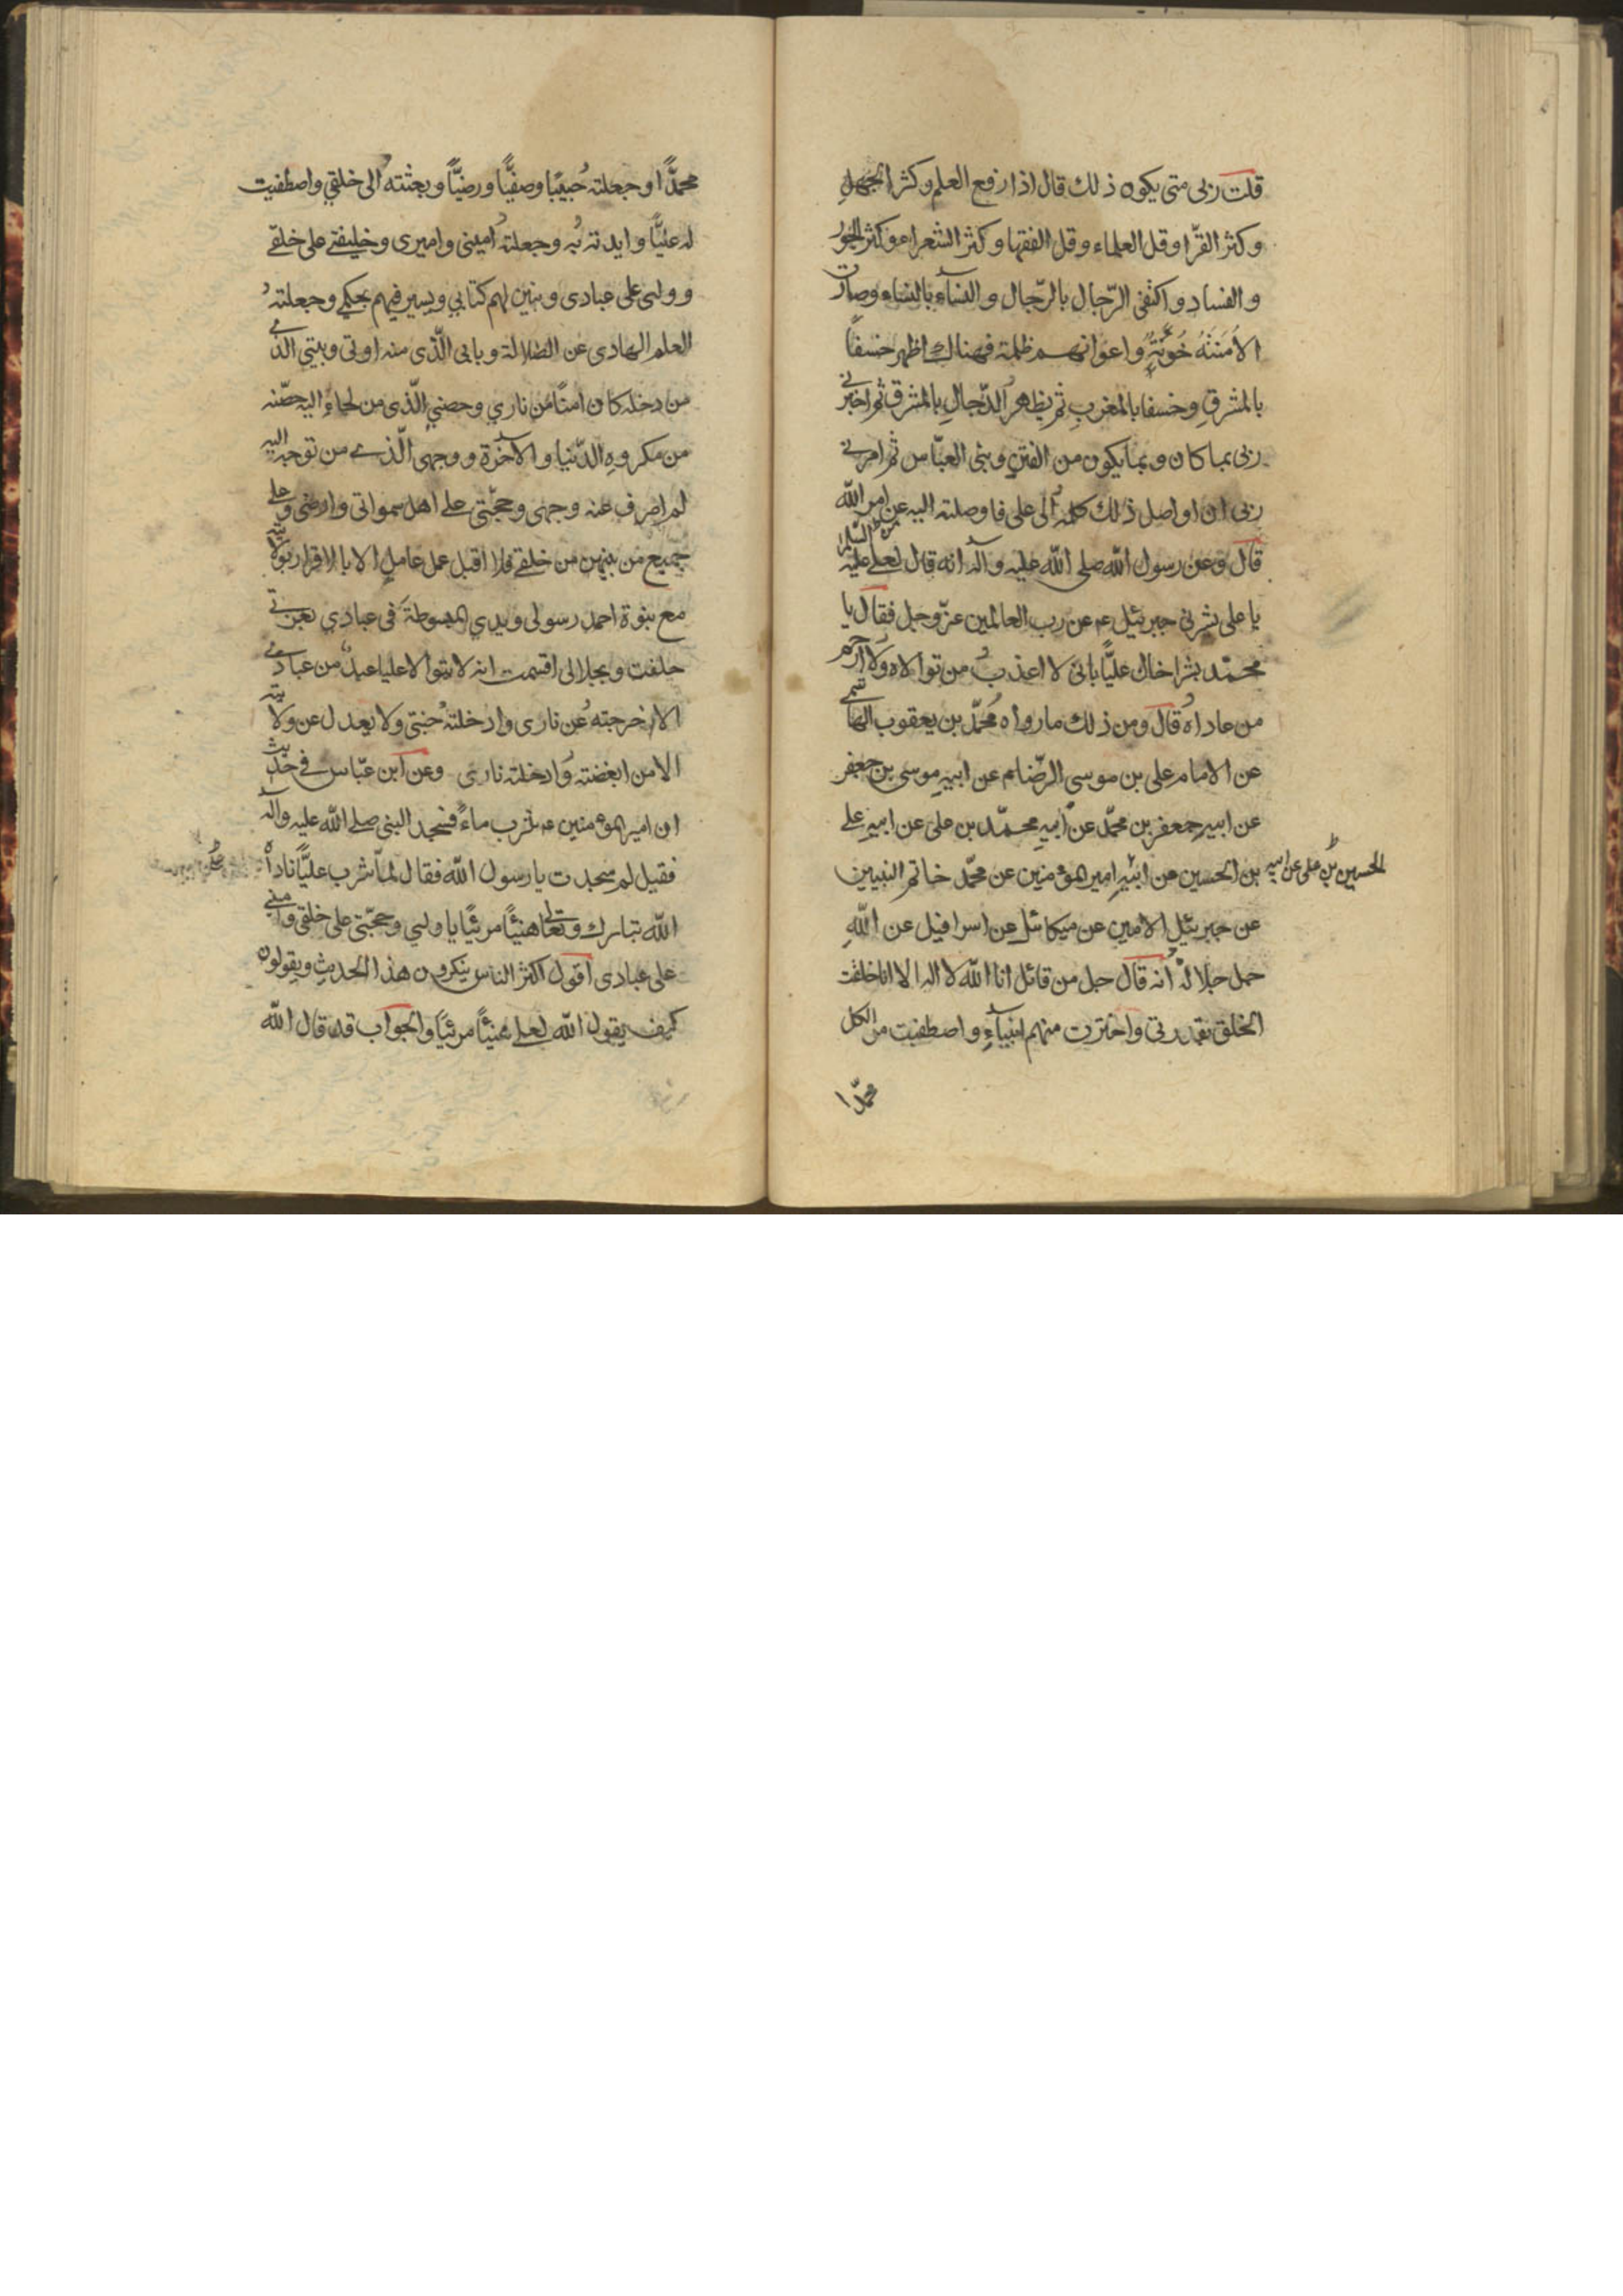 قلت ربى متى يكون ذلك قال اذا رفع العلم وكثر الجهل
وكثر القرّا وقل العلماء وقل الفقها وكثر الشعراء وكثر الجور
والفساد واكتفى الرّجال بالرّجال والنساء بالنساء وصارت
الأمننه خونة واعوانهم ظلمة فهناك اظهر خسفاً
بالمشرق وخسفا بالمغرب ثم يظهر الدّجال بالمشرق ثم اخبرنى
ربى بما كان وبما يكون من الفتن وبنى العبّاس ثم امرنے
ربى ان اواصل ذلك كلمه الى على فاوصلته اليه عن امر الله
قال وعن رسول الله صلى الله عليه وآله انه قال لعلے عليه السلام
يا على بشرنى جبرئيل ع عن رب العالمين عزّ وجل فقال يا
محمّد بشر اخاك عليّاً بانى لا اعذب من توالاه ولا ارحم
من عاداه قال ومن ذلك ما رواه محمّد بن يعقوب الهاشمے
عن الامام على بن موسى الرّضا ع عن ابيه موسى بن جعفر
عن ابيه جعفر بن محمّد عن ابيه محمّد بن على عن ابيه على
بن الحسين عن ابيه امير المؤمنين عن محمّد خاتم النبيين
الحسين بن على عن ابيه
عن جبرئيل الامين عن ميكائيل عن اسرافيل عن الله
جل جلاله انه قال جل من قائل انا الله لا اله الا انا خلقت
الخلق بقدرتى واخترت منهم انبياء واصطفيت من الكل
محمّدا
محمّداً وجعلته حبيبًا وصفيًّا ورضيًّا وبعثته الى خلقي واصطفيت
له عليًّا وايدته به وجعلته امينى واميرى وخليفتے على خلقے
وولى على عبادى وبين لهم كتابي ويسير فيهم بحكمى وجعلته
العلم الهادى عن الضلالة وبابى الّذى منه اوتى وبيتى الذى
من دخله كان امنًا من ناري وحصنى الّذى من لجاء اليه حصّنه
من مكروه الدّنيا والآخرة ووجهى الّذے من توجه اليه
لم اصرف عنه وجهى وحجّتى على اهل سمواتى وارضى وعلى
جميع من بينهن من خلقے فلا اقبل عمل عامل الا بالاقرار بولايته
مع نبوة احمد رسولى ويدي المبسوطة فى عبادي بعزتى
حلفت وبجلالى اقسمت انه لا يتوالا عليا عبد من عبادى
الا اخرجته عن نارى وادخلته جنتى ولا يعدل عن ولايته
الا من ابغضته وادخلته نارى وعن ابن عبّاس فے حديث
ان امير المؤمنين ع شرب ماءً فسجد النبى صلے الله عليه وآله
فقيل لم سجدت يا رسول الله فقال لمّا شرب عليًّا ناداه
الله تبارك وتعالى هنيئًا مرئيًا يا وليي وحجّتى على خلقى وامينے
على عبادى اقول اكثر الناس ينكرون هذا الحديث ويقولون
كيف يقول الله لعلے هنيئًا مرئيًا والجواب قد قال الله